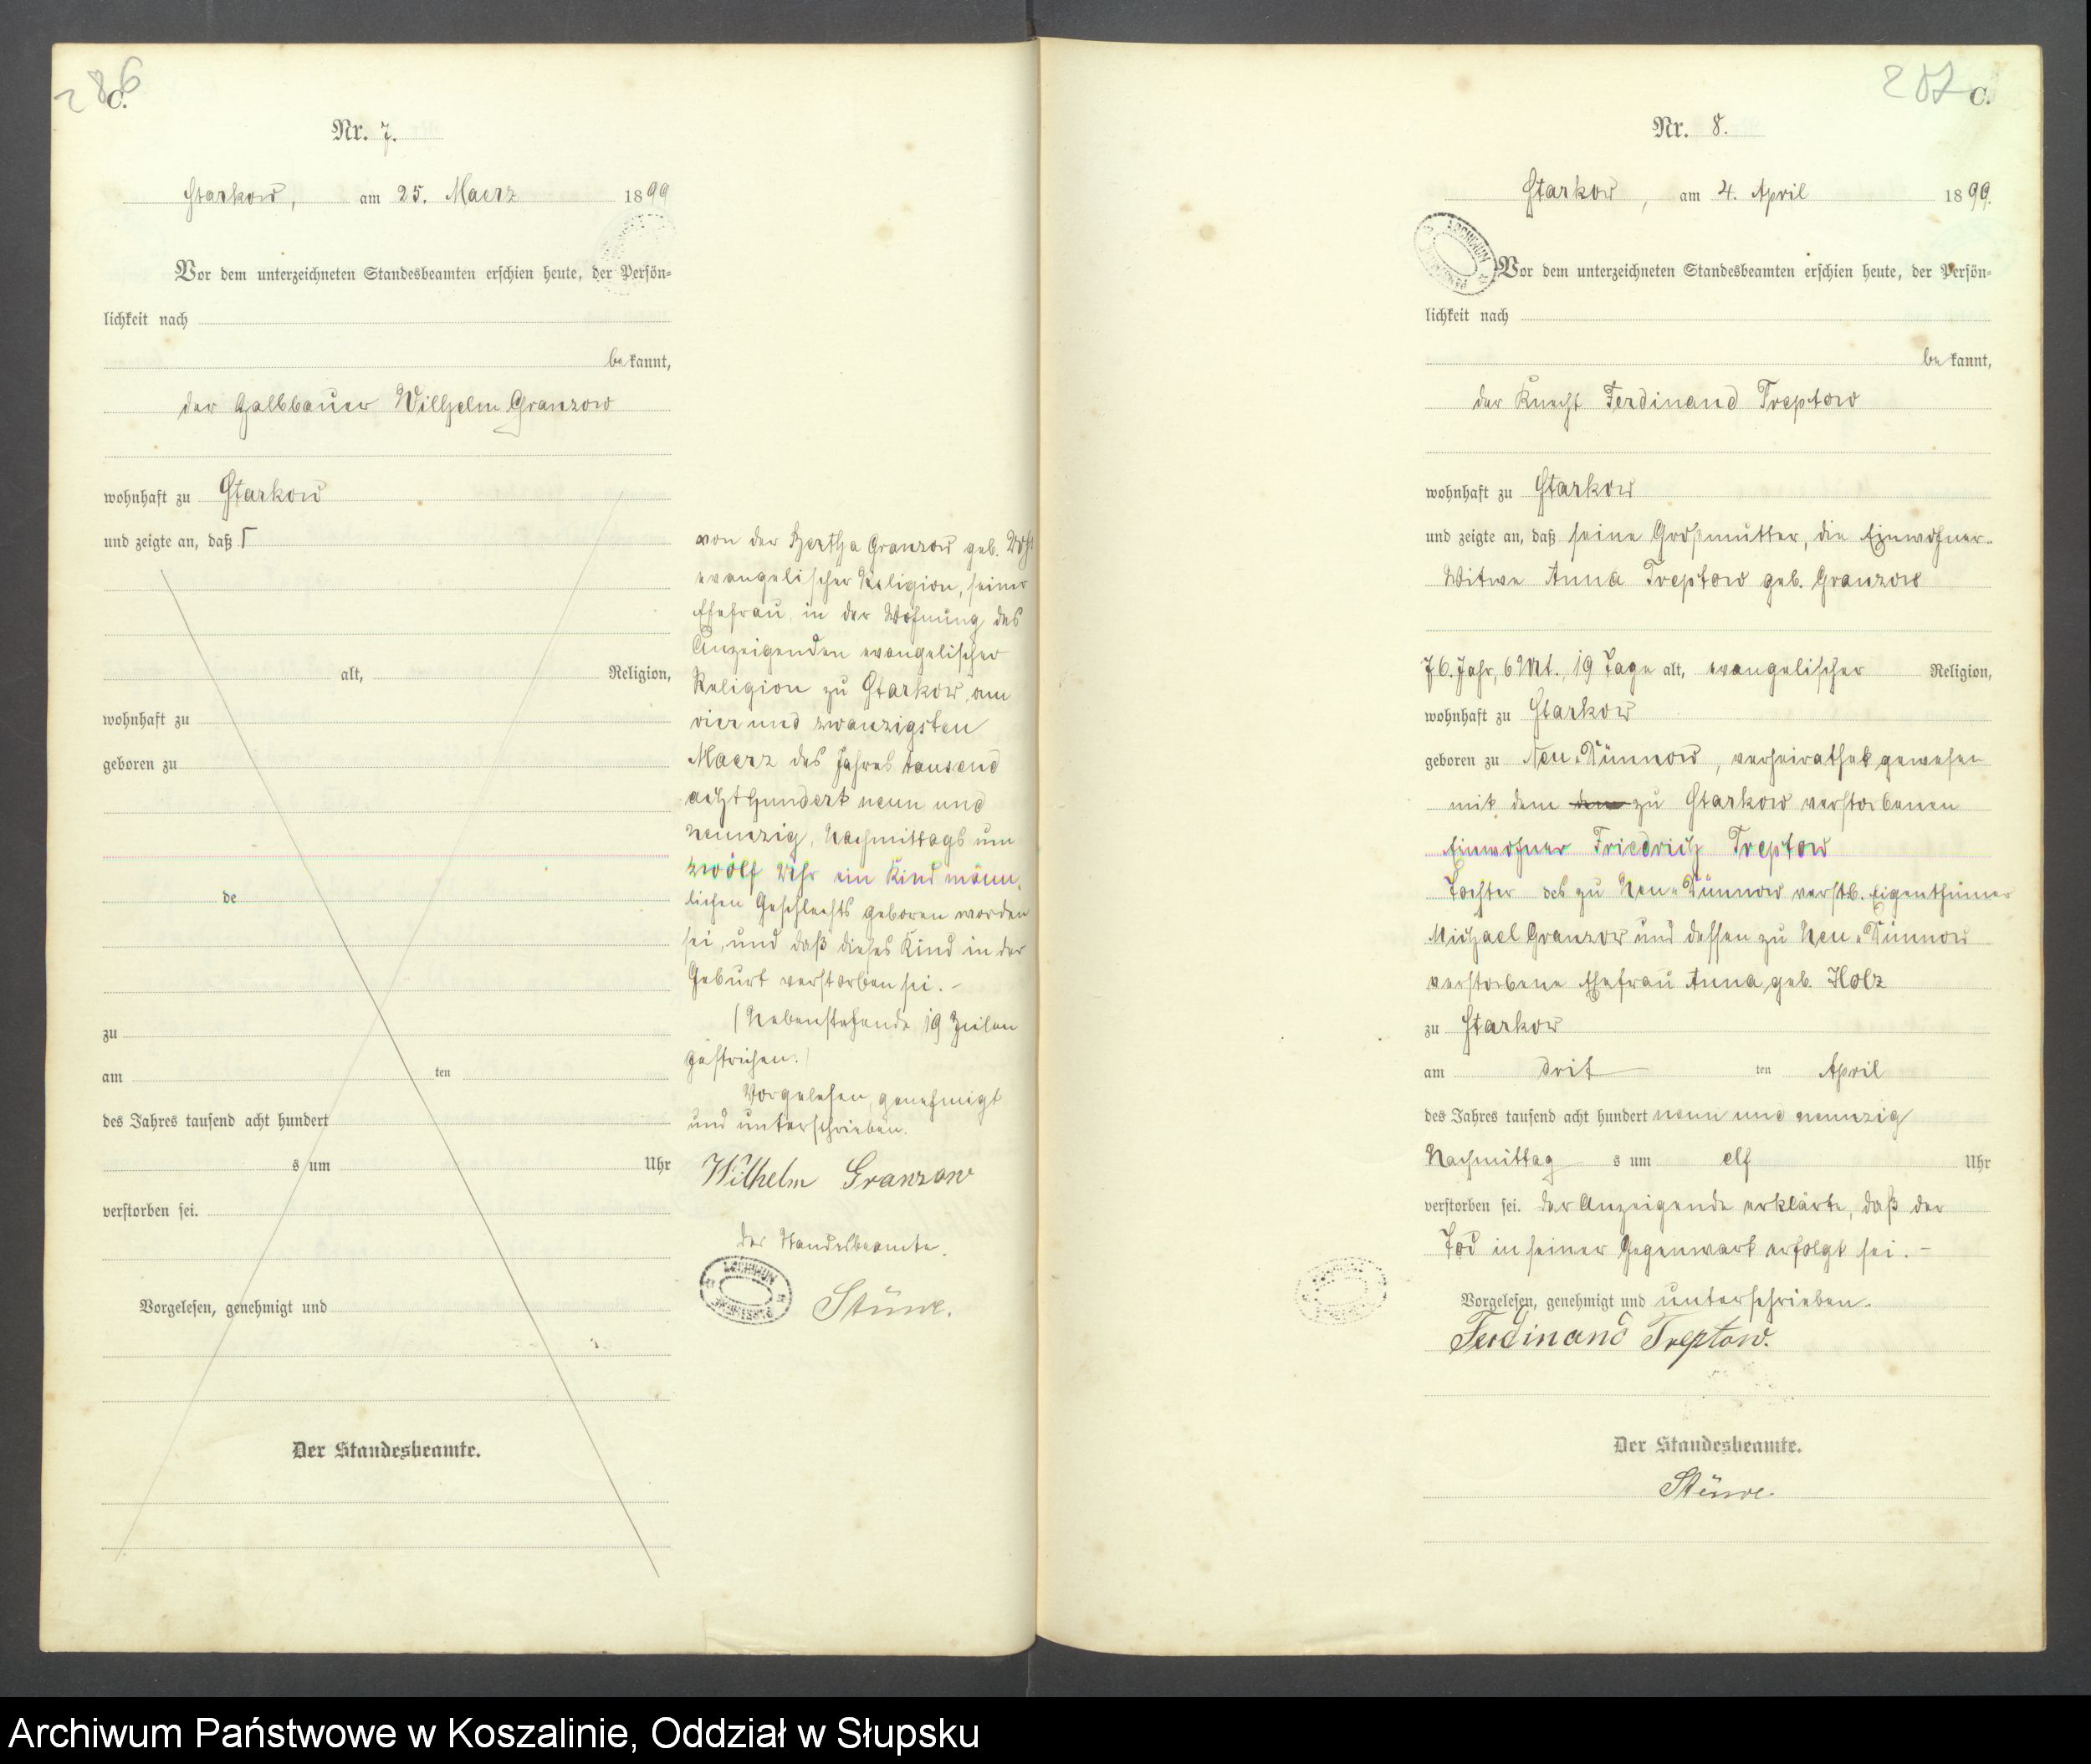 286
C.
Nr. 7.
Starkow, am 25. Maerz 1899
Vor dem unterzeichneten Standesbeamten erschien heute, der Persön=
lichkeit nach
bekannt,
der Halbbauer Wilhelm Granzow
wohnhaft zu Starkow
und zeigte an, daß Γ
alt, Religion,
wohnhaft zu
geboren zu
de
zu
am ten
des Jahres tausend acht hundert
s um Uhr
verstorben sei.
Vorgelesen, genehmigt und
Der Standesbeamte.
von der Hertha Granzow geb.
evangelischer Religion, seiner
Ehefrau, in der Wohnung des
Anzeigenden evangelischer
Religion zu Starkow, am
vier und zwanzigsten
Maerz des Jahres tausend
achthundert neun und
neunzig, Nachmittags um
zwölf Uhr ein Kind männ,
lichen Geschlechts geboren worden
sei, und daß dieses Kind in der
Geburt verstorben sei. –
(Nebenstehende 19 Zeilen
gestrichen.)
Vorgelesen, genehmigt
und unterschrieben.
Wilhelm Granzow
Der Standesbeamte.
ARCHIWUM
Stüwe.
287
C.
Nr. 8.
Starkow, am 4. April 1899.
ARCHIWUM
Vor dem unterzeichneten Standesbeamten erschien heute, der Persön=
lichkeit nach
bekannt,
der Knecht Ferdinand Treptow
wohnhaft zu Starkow
und zeigte an, daß seine Großmutter, die Einwohner-
Witwe Anna Treptow geb. Granzow
76. Jahr, 6 Mt., 19 Tage alt, evangelischer Religion,
wohnhaft zu Starkow
geboren zu Neu-Dünnow, verheirathet gewesen
mit dem zu Starkow verstorbenen
Einwohner Friedrich Treptow
Tochter des zu Neu-Dünnow verstb. Eigenthümer
Michael Granzow und dessen zu Neu-Dünnow
verstorbene Ehefrau Anna geb. Holz
zu Starkow
am drit ten April
des Jahres tausend acht hundert neun und neunzig
Nachmittag s um elf Uhr
verstorben sei. Der Anzeigende erklärte, daß der
Tod in seiner Gegenwart erfolgt sei. –
Vorgelesen, genehmigt und unterschrieben.
Ferdinand Treptow.
Der Standesbeamte.
Stüwe.
Archiwum Państwowe w Koszalinie, Oddział w Słupsku